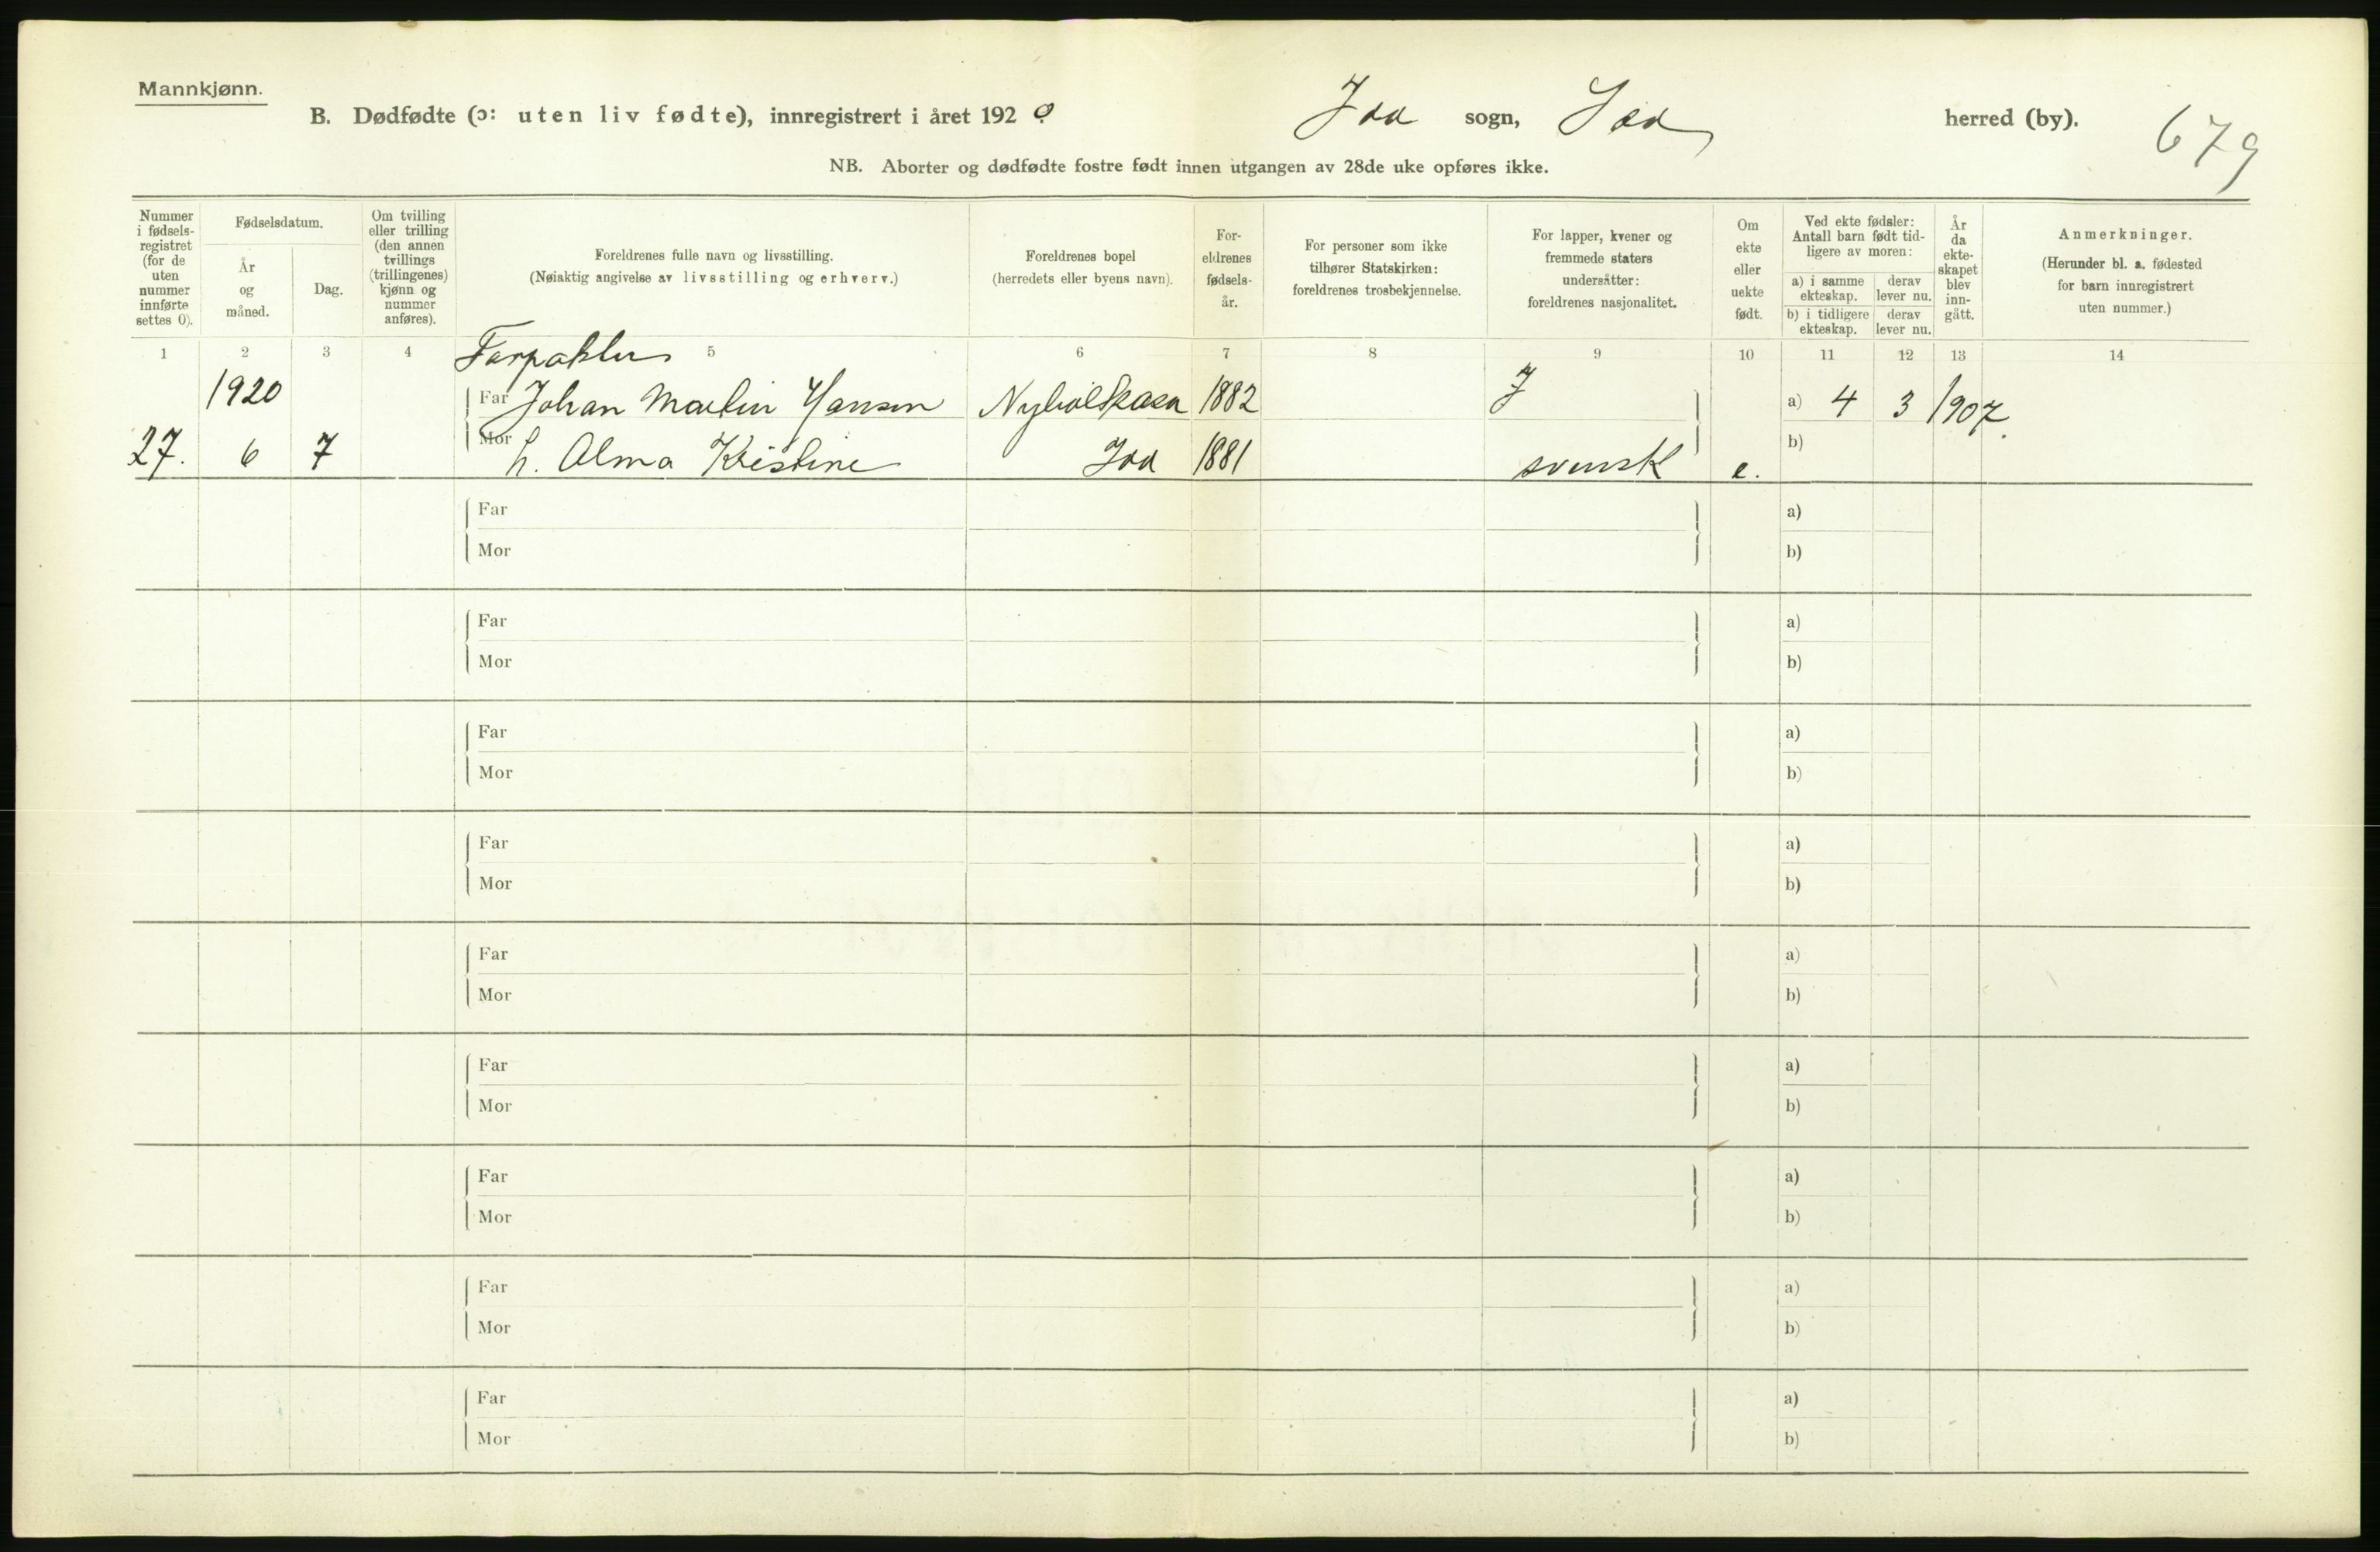 Mannkjønn.
B. Dødfødte (ɔ: uten liv fødte), innregistrert i året 1920 Idd sogn, Idd herred (by). 679
NB. Aborter og dødfødte fostre født innen utgangen av 28de uke opføres ikke.
Nummer i fødsels-registret (for de uten nummer innførte settes 0).
Fødselsdatum.
År og måned.
Dag.
Om tvilling eller trilling (den annen tvillings (trillingenes) kjønn og nummer anføres).
Foreldrenes fulle navn og livsstilling.
(Nøiaktig angivelse av livsstilling og erhverv.)
Foreldrenes bopel
(herredets eller byens navn).
For-eldrenes fødsels-år.
For personer som ikke tilhører Statskirken: foreldrenes trosbekjennelse.
For lapper, kvener og fremmede staters undersåtter: foreldrenes nasjonalitet.
Om ekte eller uekte født.
Ved ekte fødsler: Antall barn født tid-ligere av moren:
a) i samme ekteskap.
derav lever nu.
b) i tidligere ekteskap.
derav lever nu.
År da ekte-skapet blev inn-gått.
Anmerkninger.
(Herunder bl. a. fødested for barn innregistrert uten nummer.)
1 2 3 4 5 6 7 8 9 10 11 12 13 14
Forpakter
1920 Far Johan Martin Hansen 1882 a) 4 3 1907.
27. 6 7 Mor h. Alma Kristine Idd 1881 svensk e. b)
Far a)
Mor b)
Far a)
Mor b)
Far a)
Mor b)
Far a)
Mor b)
Far a)
Mor b)
Far a)
Mor b)
Far a)
Mor b)
Far a)
Mor b)
Far a)
Mor b)